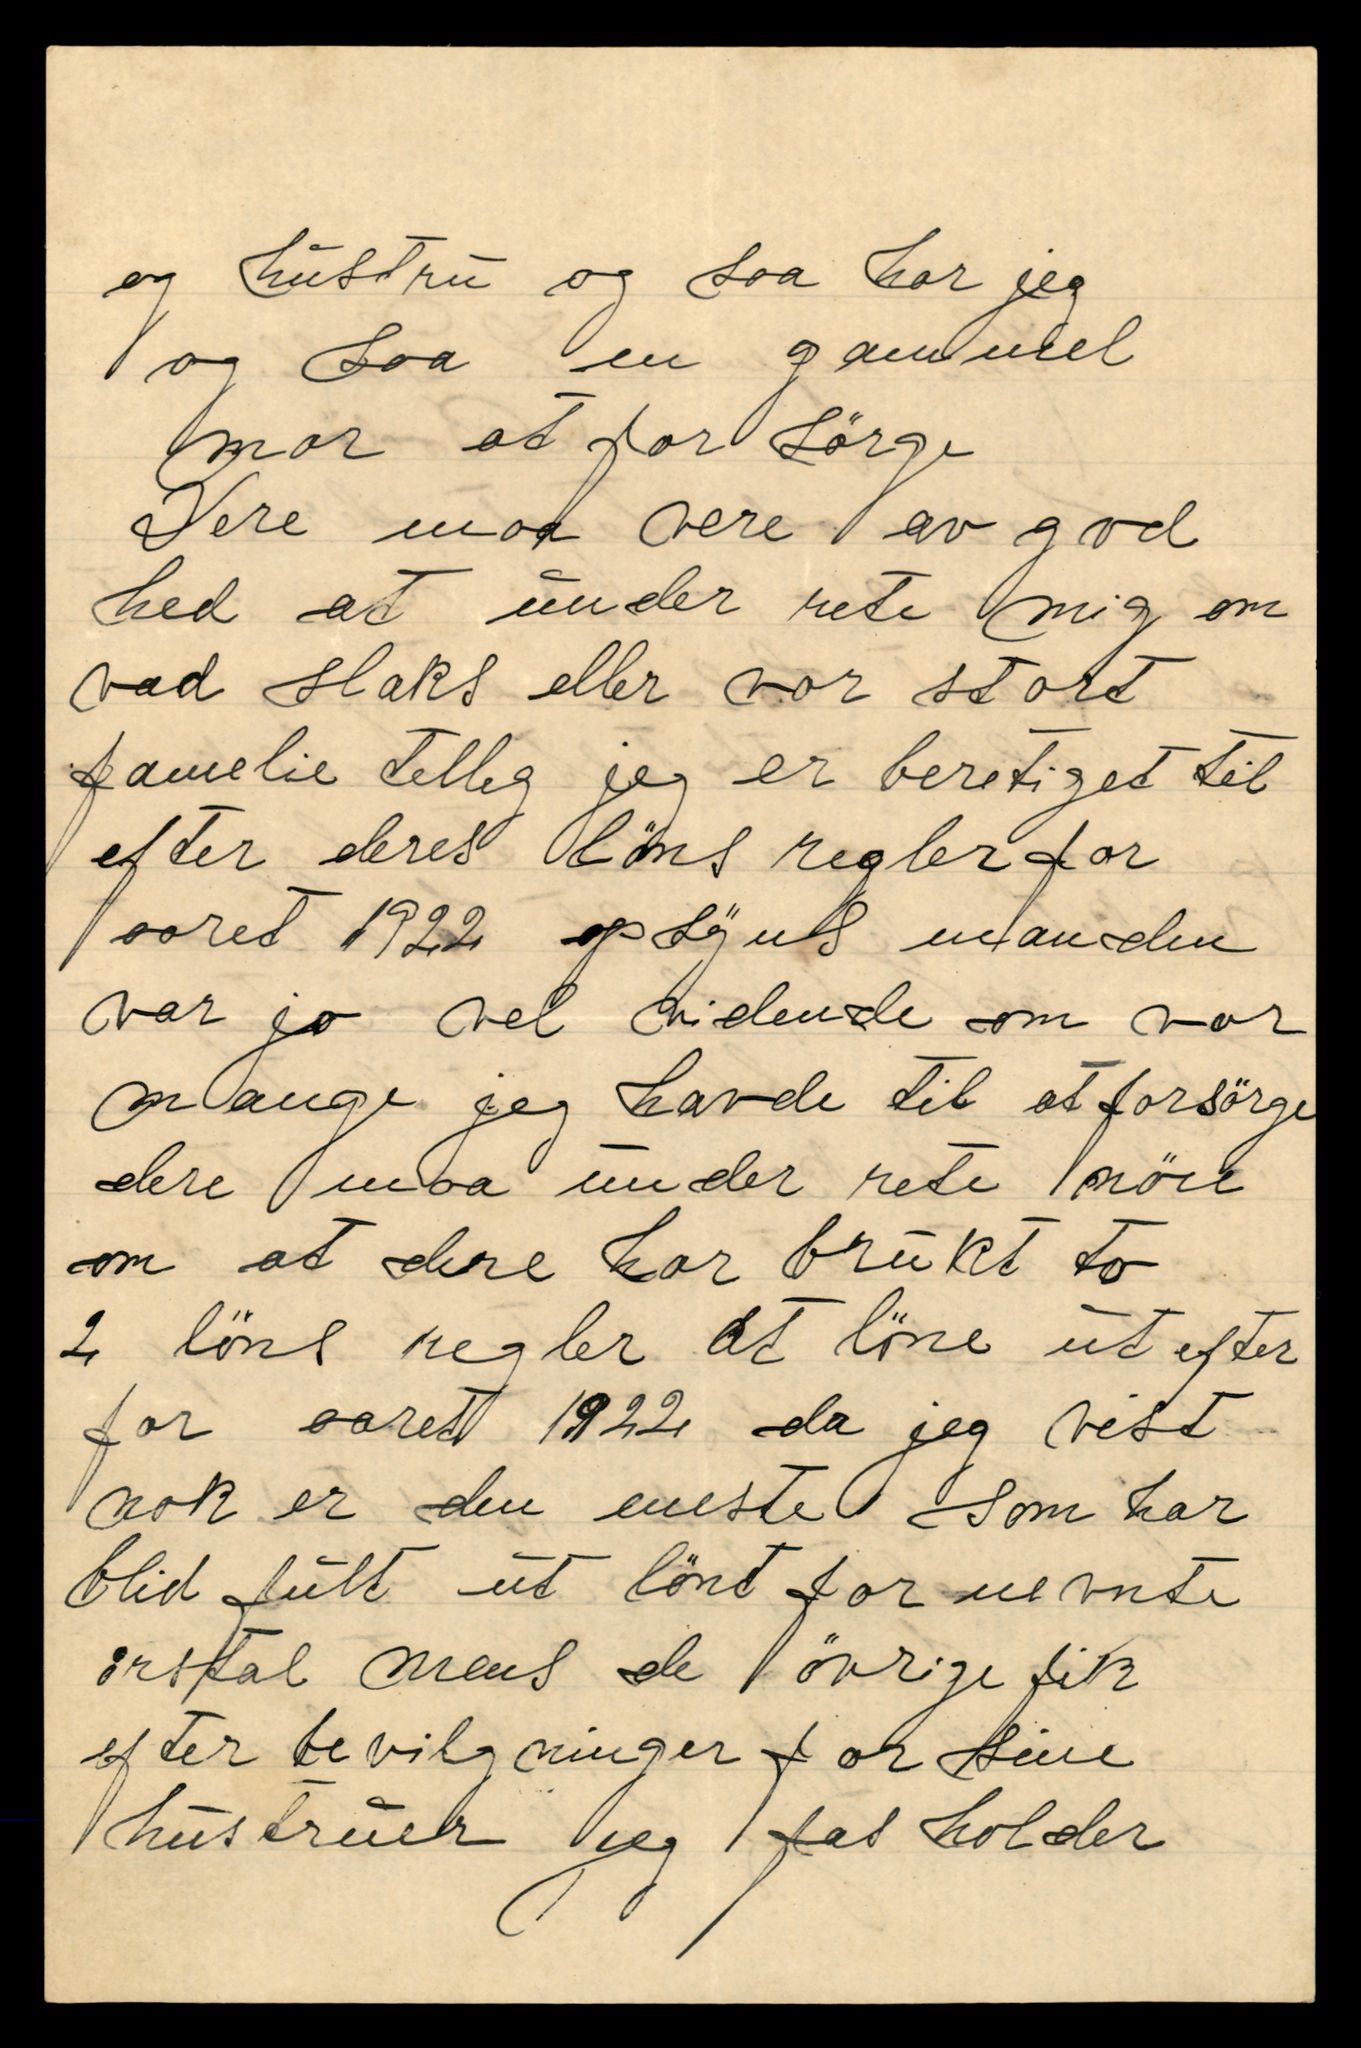 og hustru og saa har jeg
og saa en gammel
mor at for sörge
Dere maa vere av god
hed at under rete mig om
vad slaks eller vor stort
famelie telleg jeg er beretiget til
efter deres löns regler for
aaret 1922 opsÿns manden
var jo vel vidende om vor
mange jeg havde til at forsörge
dere maa under rete nöie
om at dere har brukt to
2 löns regler at löne ut efter
for aaret 1922 da jeg vist
nok er den eneste som har
blid fult ut lönt for nevnte
årstal mens de övrige fik
efter bevilgninger for sine
hustruer jeg fasholder